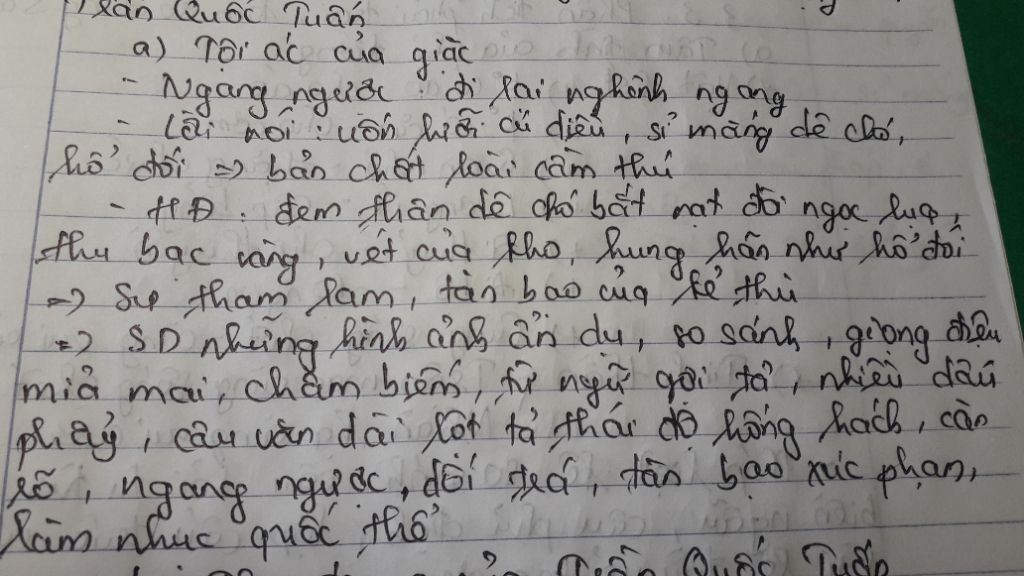 Trần Quốc Tuấn
a) Tội ác của giặc
- Ngang ngược : đi lại nghênh ngang
- Lời nói : uốn lưỡi cú diều, sỉ mắng dê chó,
hổ đói => bản chất loài cầm thú
- HĐ : đem thân dê chó bắt nạt đòi ngọc lụa,
thu bạc vàng, vét của kho, hung hãn như hổ đói
=> Sự tham lam, tàn bạo của kẻ thù
=> SD những hình ảnh ẩn dụ, so sánh, giọng điệu
mỉa mai, châm biếm, từ ngữ gợi tả, nhiều dấu
phẩy, câu văn dài lột tả thái độ hống hách, càn
rỡ, ngang ngược, dối trá, tàn bạo xúc phạm,
làm nhục quốc thể
Trần Quốc Tuấn